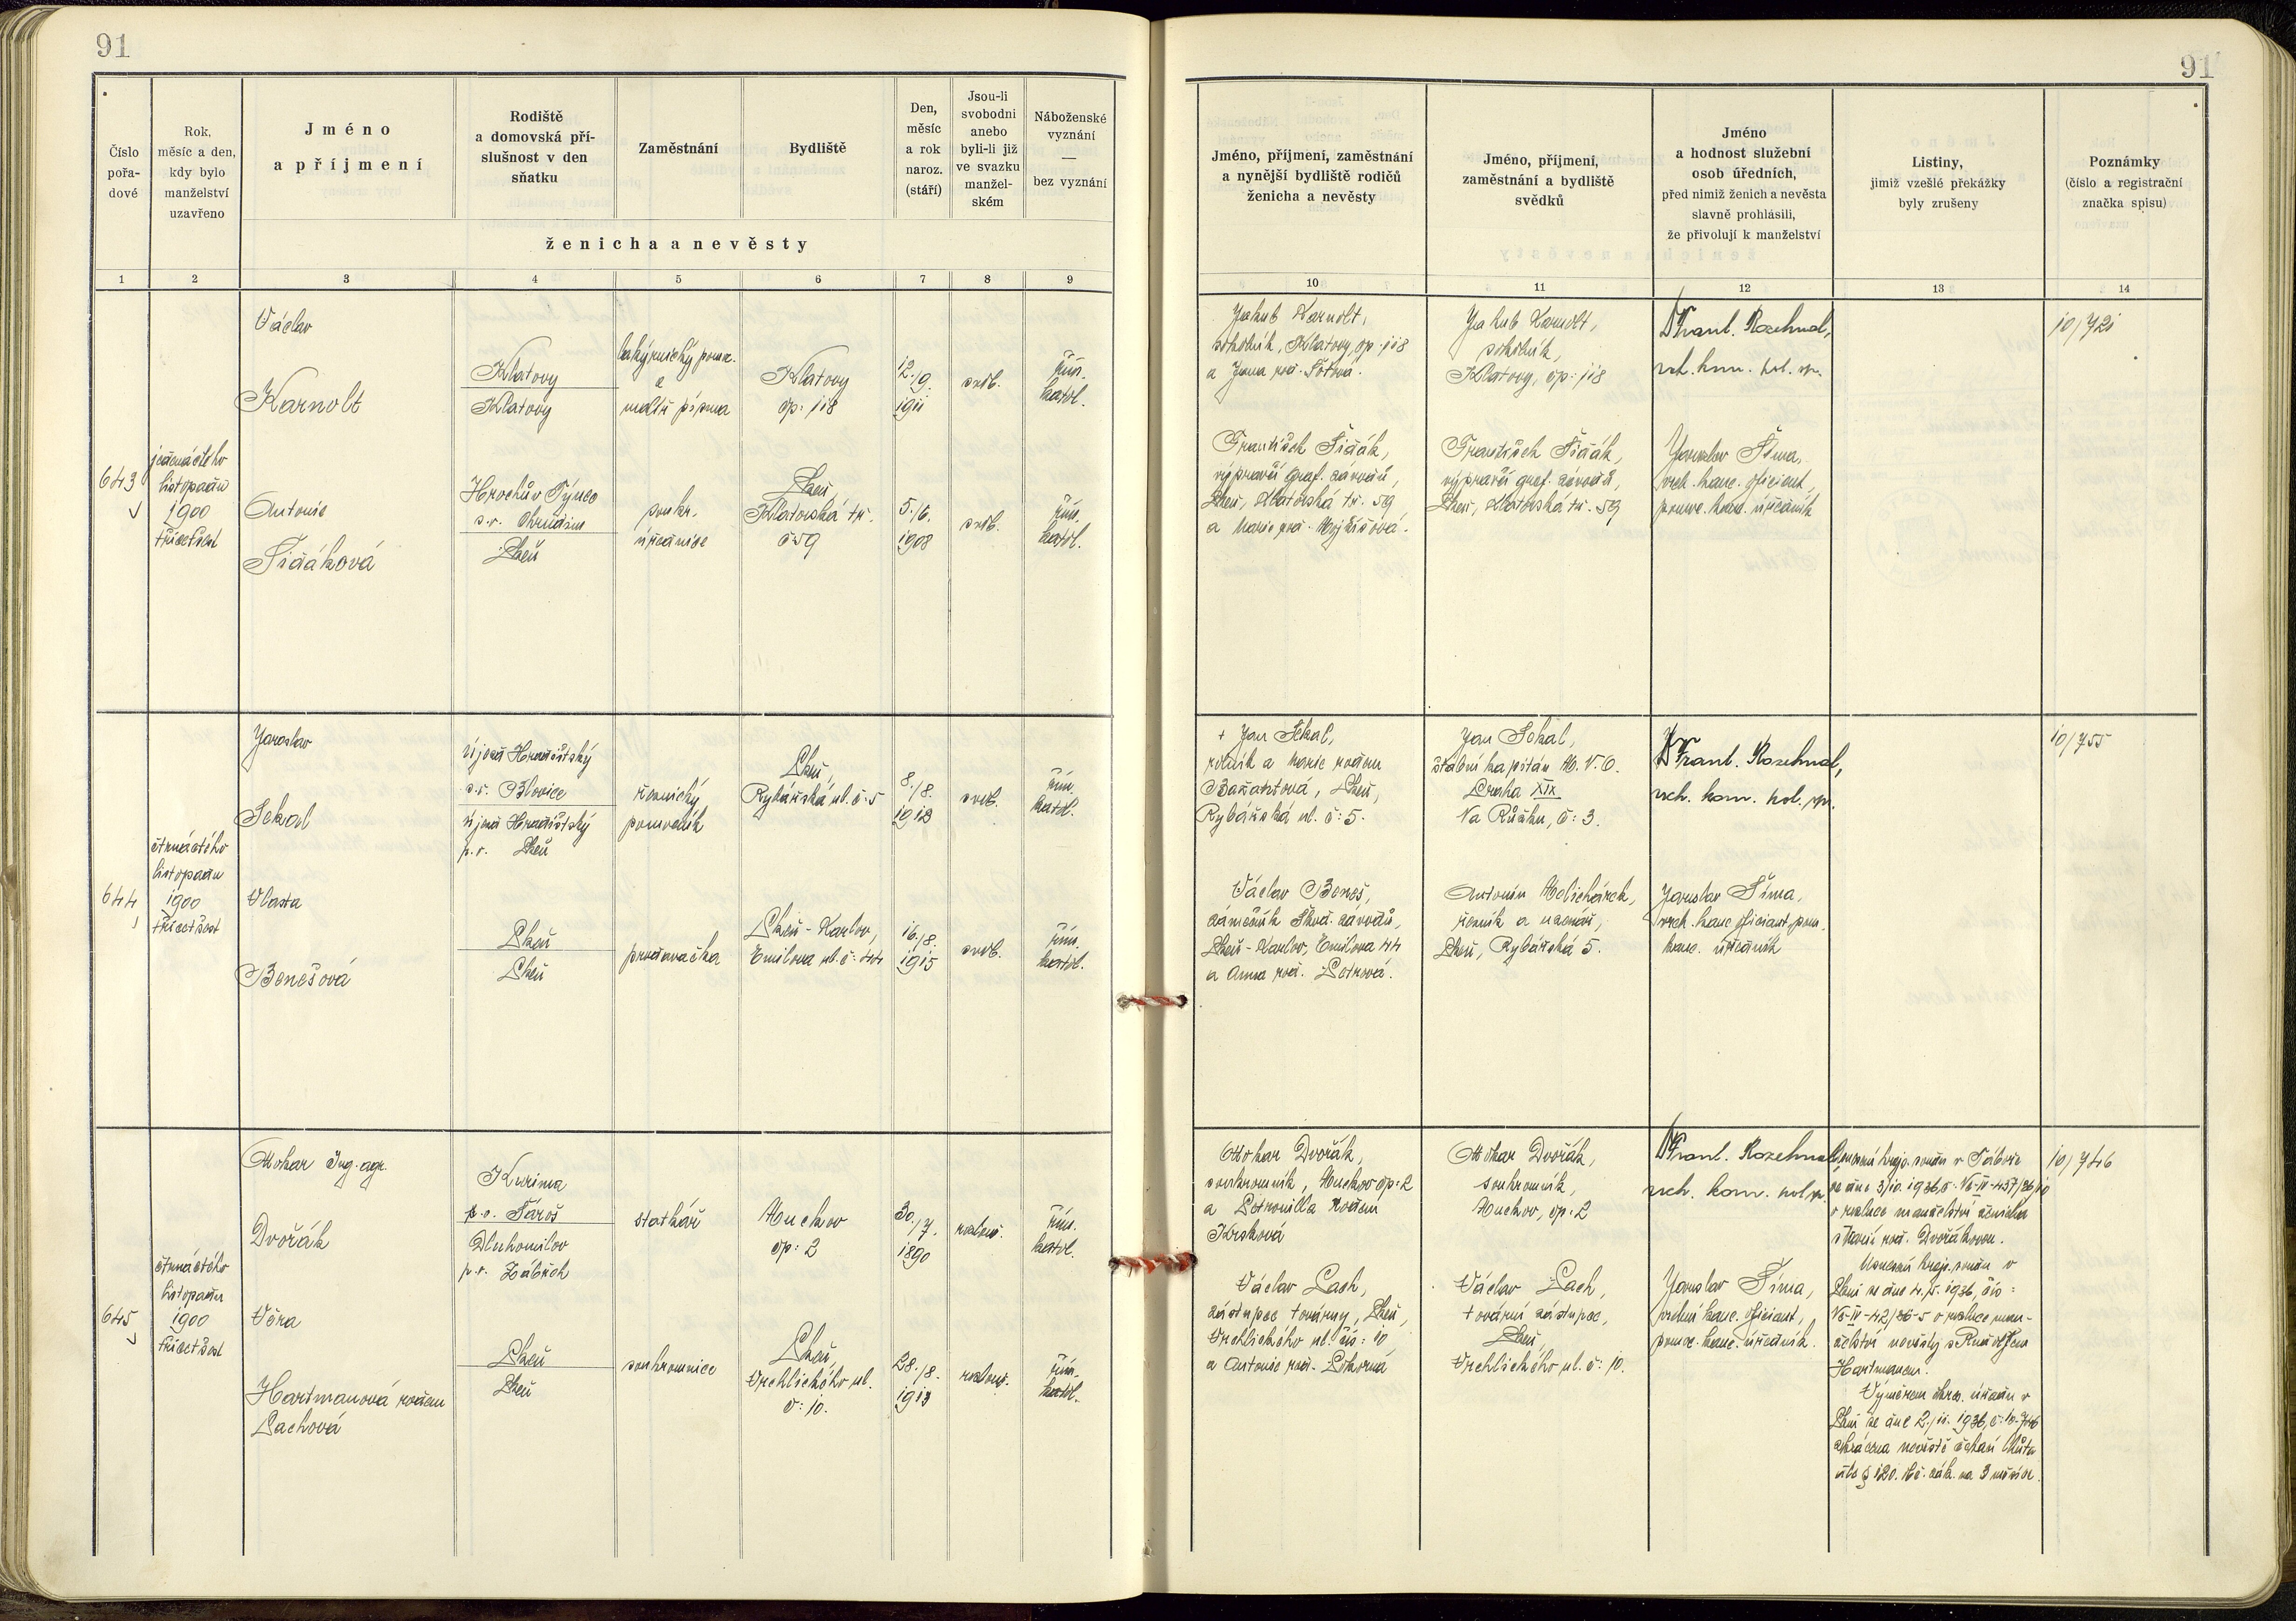 91
91
Číslo pořa-dové
Rok, měsíc a den, kdy bylo manželství uzavřeno
Jméno a příjmení
Rodiště a domovská pří-slušnost v den sňatku
Zaměstnání
Bydliště
Den, měsíc a rok naroz. (stáří)
Jsou-li svobodni anebo byli-li již ve svazku manžel-ském
Náboženské vyznání — bez vyznání
ženicha a nevěsty
1 2 3 4 5 6 7 8 9
Jméno, příjmení, zaměstnání a nynější bydliště rodičů ženicha a nevěsty
Jméno, příjmení, zaměstnání a bydliště svědků
Jméno a hodnost služební osob úředních, před nimiž ženich a nevěsta slavně prohlásili, že přivolují k manželství
Listiny, jimiž vzešlé překážky byly zrušeny
Poznámky (číslo a registrační značka spisu)
10 11 12 13 14
643
jedenáctého
listopadu
1900
třicetšest
Václav
Karnolt
Klatovy
Klatovy
12./9.
1911
Klatovy
čp: 118
svob.
řím.
katol.
Antonie
Šidáková
Hrochův Týnec
s.o. Chrudim
Plzeň
soukr.
úřednice
Plzeň
Klatovská tř.
č 59
5./6.
1908
svob.
řím.
katol.
Jakub Karnolt,
Klatovy, čp: 118
a Jana roz.
František Šidák,
výpravčí graf. závodů,
Plzeň, Klatovská tř. 59
a Marie roz.
Jakub Karnolt,
Klatovy, čp: 118
František Šidák,
výpravčí graf. závodů,
Plzeň, Klatovská tř. 59
Frant. Rozehnal,
vrch. kom. pol. spr.
Jaroslav Šíma,
vrch. kanc. oficiant,
pomoc. kanc. úředník
10/721
644
čtrnáctého
listopadu
1900
třicetšest
Jaroslav
Sekal
Újezd Hradišťský
s.o. Blovice
Újezd Hradišťský
p.o. Plzeň
řeznický
pomocník
Plzeň,
Rybářská ul. č: 5
8./8.
svob.
řím.
katol.
Vlasta
Benešová
Plzeň
Plzeň
prodavačka
Plzeň - Karlov,
Emilova ul. č: 44
16./8.
1915
svob.
řím.
katol.
+ Jan Sekal,
rolník a Marie rodem
Plzeň,
Rybářská ul. č: 5.
Václav Beneš,
zámečník Škod. závodů,
Plzeň - Karlov, Emilova 44
a Anna roz. Petrová.
Jan Sekal,
štábní kapitán
Praha XIX
Na Růžku, č: 3.
Antonín
řezník a uzenář,
Plzeň, Rybářská 5.
Frant. Rozehnal,
vrch. kom. pol. spr.
Jaroslav Šíma,
vrch. kanc. oficiant, pom.
kanc. úředník
10/755
645
čtrnáctého
listopadu
1900
třicetšest
Otokar Ing. agr.
Dvořák
Kurima
p.o.
Dluhomilov
p.o. Zábřeh
statkář
čp: 2
30./7.
1890
rozlouč.
řím.
katol.
Věra
Hartmanová rodem
Lachová
Plzeň
Plzeň
soukromnice
Plzeň
Vrchlického ul.
č: 10.
28./8.
1913
rozlouč.
řím.
katol.
Otokar Dvořák,
soukromník, čp: 2
a Petronilla rodem
Krsková
Václav Lach,
zástupce továrny, Plzeň,
Vrchlického ul. čís: 10
a Antonie roz. Pokorná
Otokar Dvořák,
soukromník,
čp: 2
Václav Lach,
tovární zástupce,
Plzeň,
Vrchlického ul. č: 10.
Frant. Rozehnal,
vrch. kom. pol. spr.
Jaroslav Šíma,
vrchní kanc. oficiant,
pomoc. kanc. úředník.
Usnesení kraj. soudu v Táboře
ze dne 3/10. 1936,
o rozluce manželství ženicha
s roz. Dvořákovou.
Usnesení kraj. soudu v
Plzni ze dne 1936, čís:
42/36-5 o rozluce man-
želství nevěsty s Rudolfem
Hartmanem.
Výměrem okres. úřadu v
Plzni ze dne 2./11. 1936, č: 10-746
zkrácena nevěstě čekací lhůta
dle § 120. zák. na 3 měsíce.
10/746